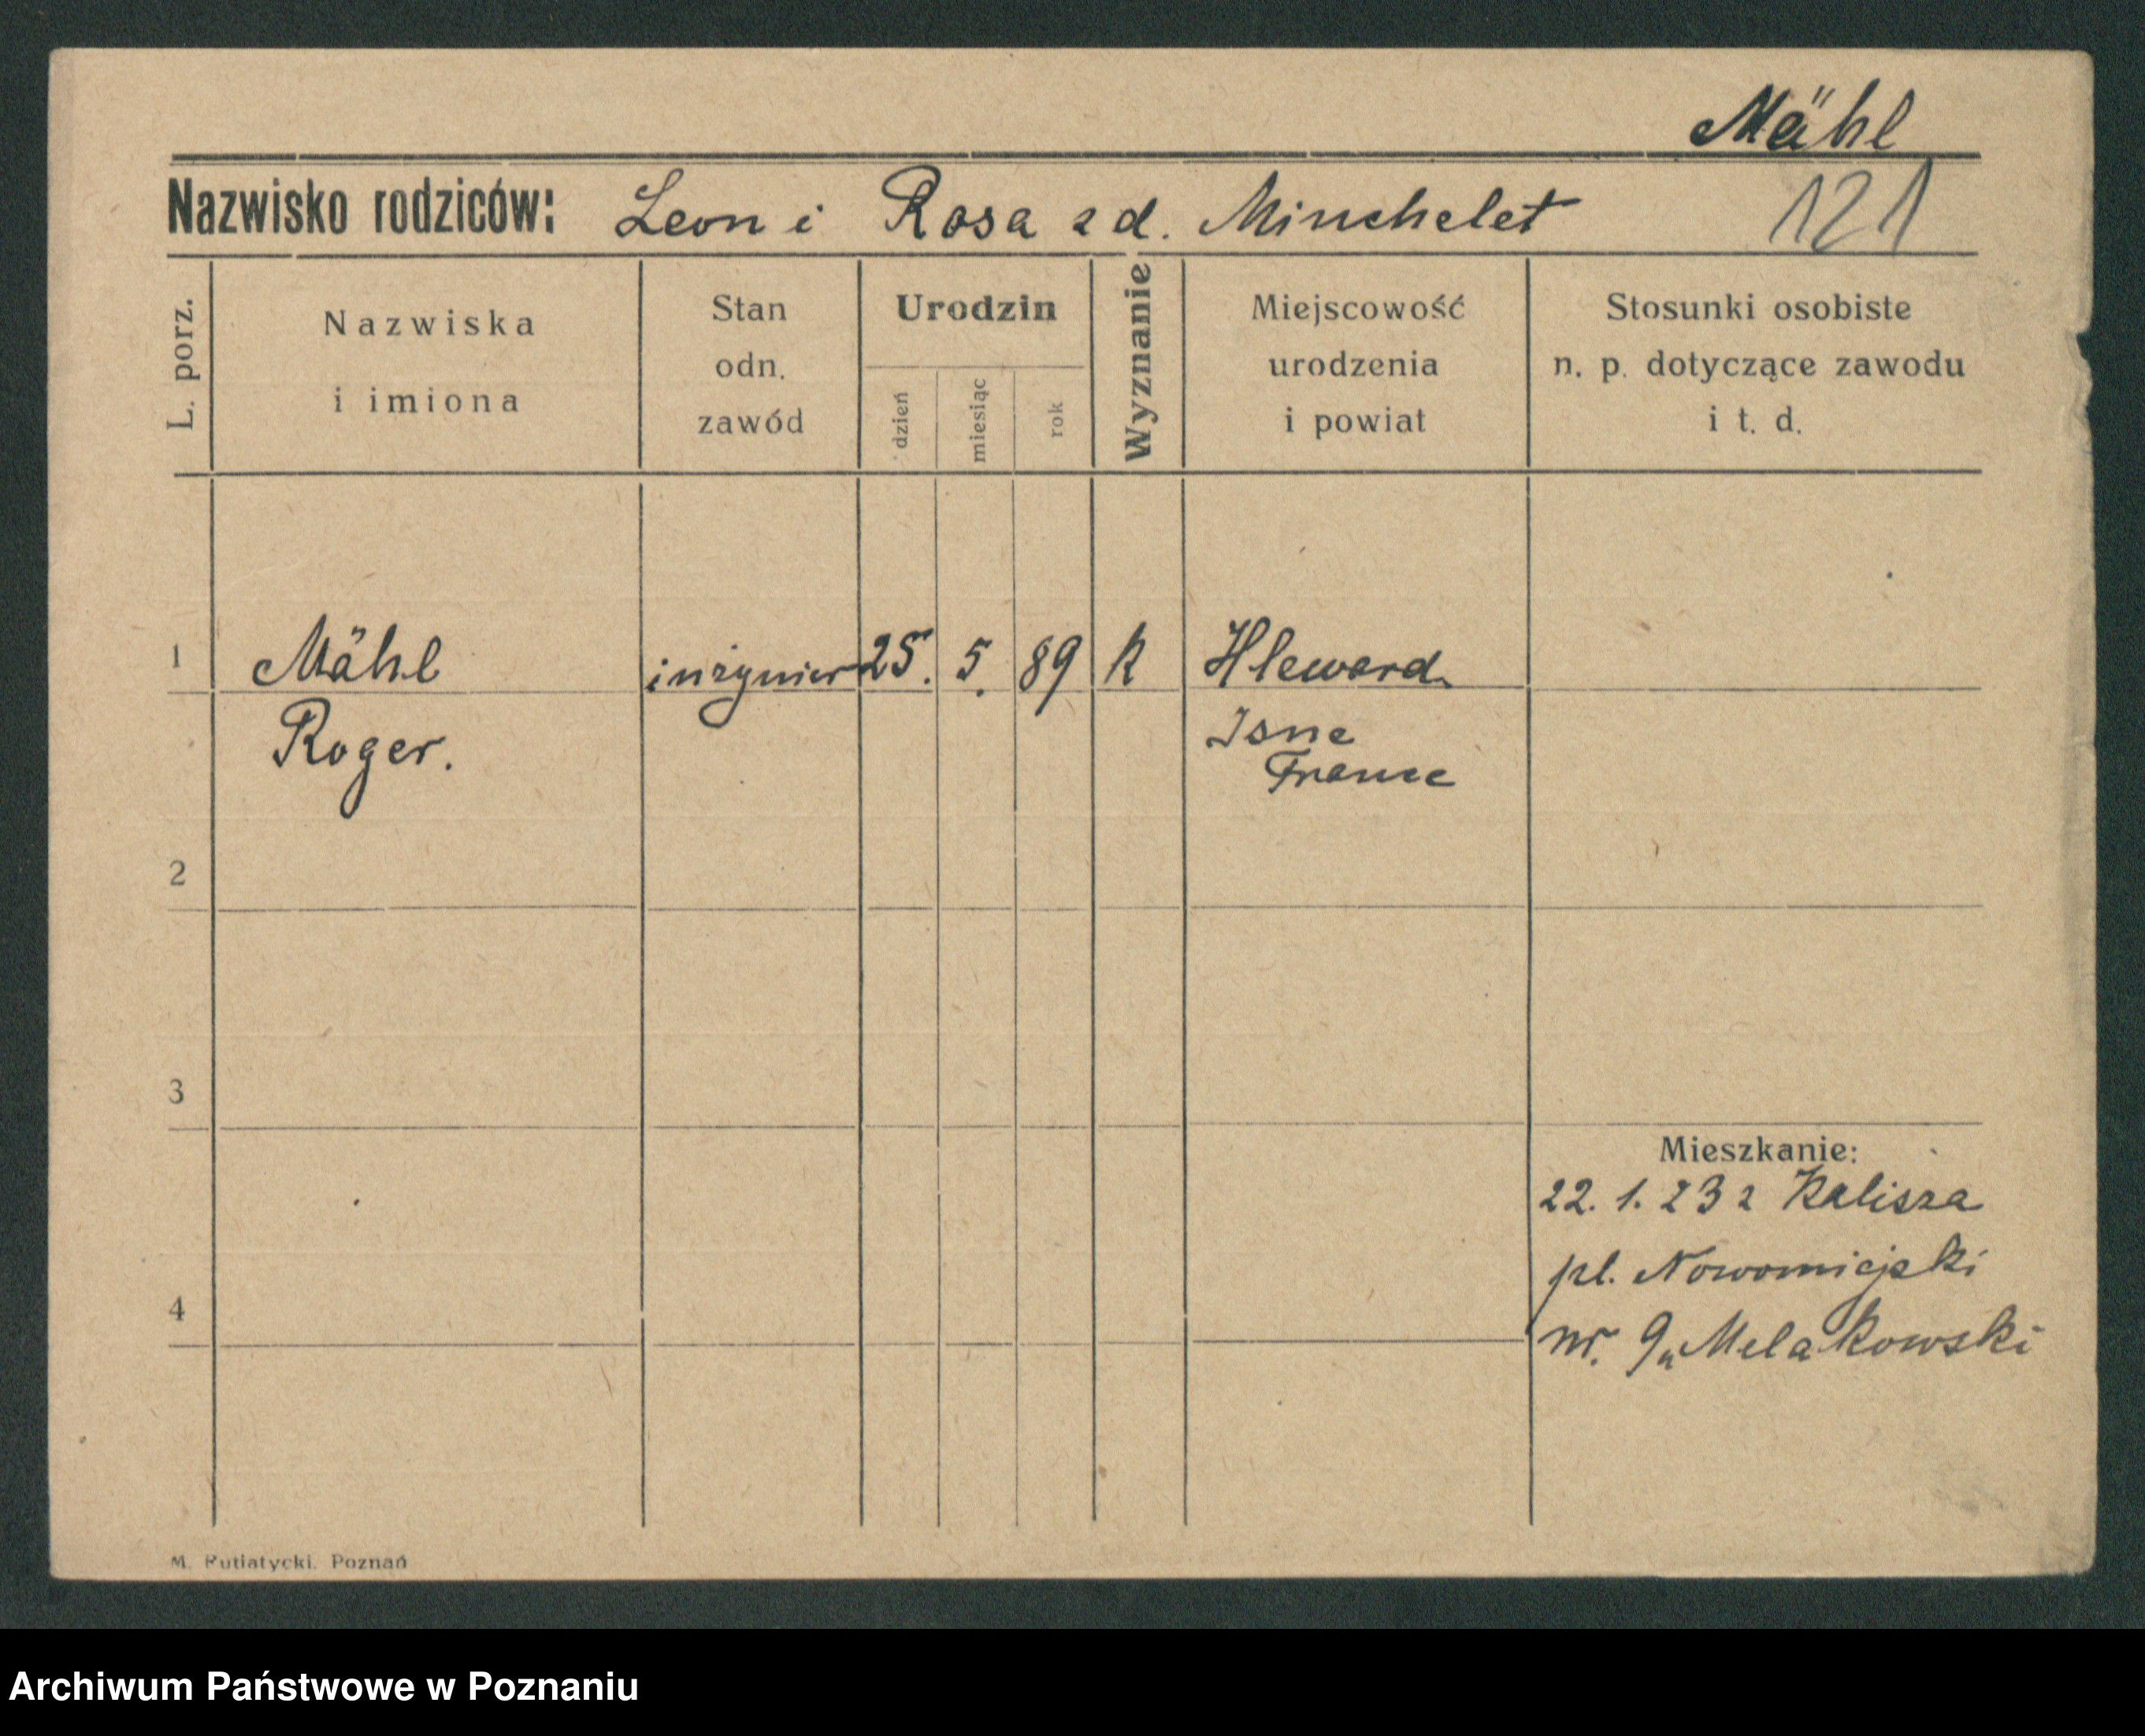 Mähl
Nazwisko rodziców: Leon i Rosa z d. Minchelet 121
L. porz.
Nazwiska
i imiona
Stan
odn.
zawód
Urodzin
dzień
miesiąc
rok
Wyznanie
Miejscowość
urodzenia
i powiat
Stosunki osobiste
n. p. dotyczące zawodu
i t. d.
1 Mähl inżynier 25. 5. 89 K Hleward
Roger. Isne
France
2
3
Mieszkanie:
22. 1. 23 z Kalisza
pl. Nowomiejski
4
nr. 9 u Melakowski
M. Putiatycki. Poznań
Archiwum Państwowe w Poznaniu